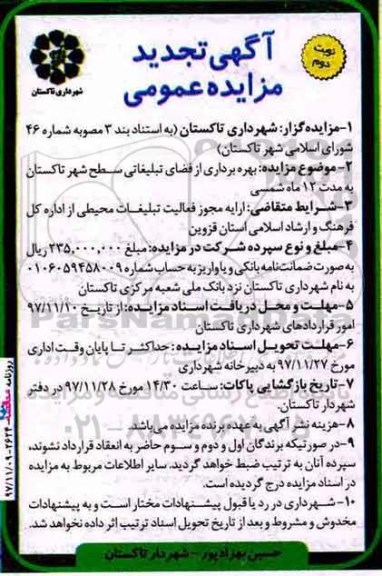 آگهی تجدید
مزایده عمومی
نوبت
دوم
شهرداری تاکستان
۱-مزایده‌گزار: شهرداری تاکستان (به استناد بند ۳ مصوبه شماره ۴۶
شورای اسلامی شهر تاکستان)
۲-موضوع مزایده: بهره برداری از فضای تبلیغاتی سطح شهر تاکستان
به مدت ۱۲ ماه شمسی
۳-شرایط متقاضی: ارایه مجوز فعالیت تبلیغات محیطی از اداره کل
فرهنگ و ارشاد اسلامی استان قزوین
۴-مبلغ و نوع سپرده شرکت در مزایده: مبلغ ۲۳۵,۰۰۰,۰۰۰ ریال
به صورت ضمانت‌نامه بانکی و یا واریز به حساب شماره ۰۱۰۶۰۵۹۴۵۸۰۰۹
به نام شهرداری تاکستان نزد بانک ملی شعبه مرکزی تاکستان
۵-مهلت و محل دریافت اسناد مزایده: از تاریخ ۹۷/۱۱/۱۰
امور قراردادهای شهرداری تاکستان
۶-مهلت تحویل اسناد مزایده: حداکثر تا پایان وقت اداری
مورخ ۹۷/۱۱/۲۷ به دبیرخانه شهرداری
۷-تاریخ بازگشایی پاکات: ساعت ۱۴/۳۰ مورخ ۹۷/۱۱/۲۸ در دفتر
شهردار تاکستان.
۸-هزینه نشر آگهی به عهده برنده مزایده می‌باشد.
۹-در صورتیکه برندگان اول و دوم و سوم حاضر به انعقاد قرارداد نشوند،
سپرده آنان به ترتیب ضبط خواهد گردید. سایر اطلاعات مربوط به مزایده
در اسناد مزایده درج گردیده است.
۱۰-شهرداری در رد یا قبول پیشنهادات مختار است و به پیشنهادات
مخدوش و مشروط و بعد از تاریخ تحویل اسناد ترتیب اثر داده نخواهد شد.
حسین بهزادپور - شهردار تاکستان
ParsNamadData
۰۲۱-۸۸۳۴۹۶۷۰
روزنامه
۹۷/۱۱/۰۹-۴۶۲۴